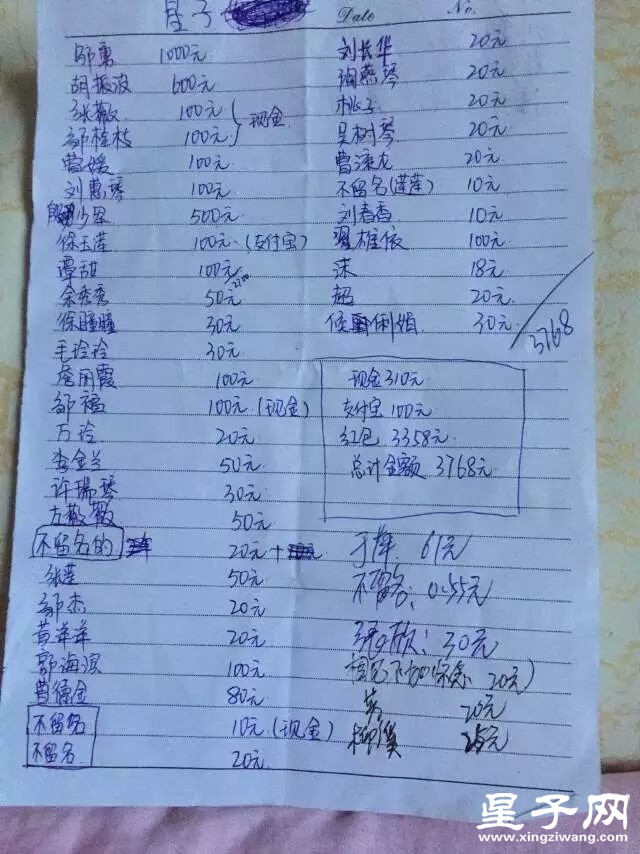 星子
Date
No.
邬惠 1000元
胡振波 600元
张敏 100元
邹桂枝 100元
现金
曹媛 100元
刘惠琴 100元
500元
徐玉莲 100元(支付宝)
谭甜 100元
余秀秀 50元
徐瞳瞳 30元
毛玲玲 30元
詹闺霞 100元
邹福 100元(现金)
万玲 20元
李金兰 50元
许瑞琴 30元
方敏敏 50元
不留名的 20元+
张莲 50元
邹杰 20元
黄洋洋 20元
郭海滨 100元
曹德金 80元
不留名 10元(现金)
不留名 20元
刘长华 20元
陶燕琴 20元
桃子 20元
吴树琴 20元
曹涑龙 20元
不留名(莲莲) 10元
刘春香 10元
翟雄依 100元
沫 18元
超 20元
俐娟 30元
3768
现金310元
支付宝100元
红包 3358元
总计金额 3768元
于萍 61元
不留名: 0.55元
欣: 30元
20元)
20元
元
星子网
www.xingziwang.com